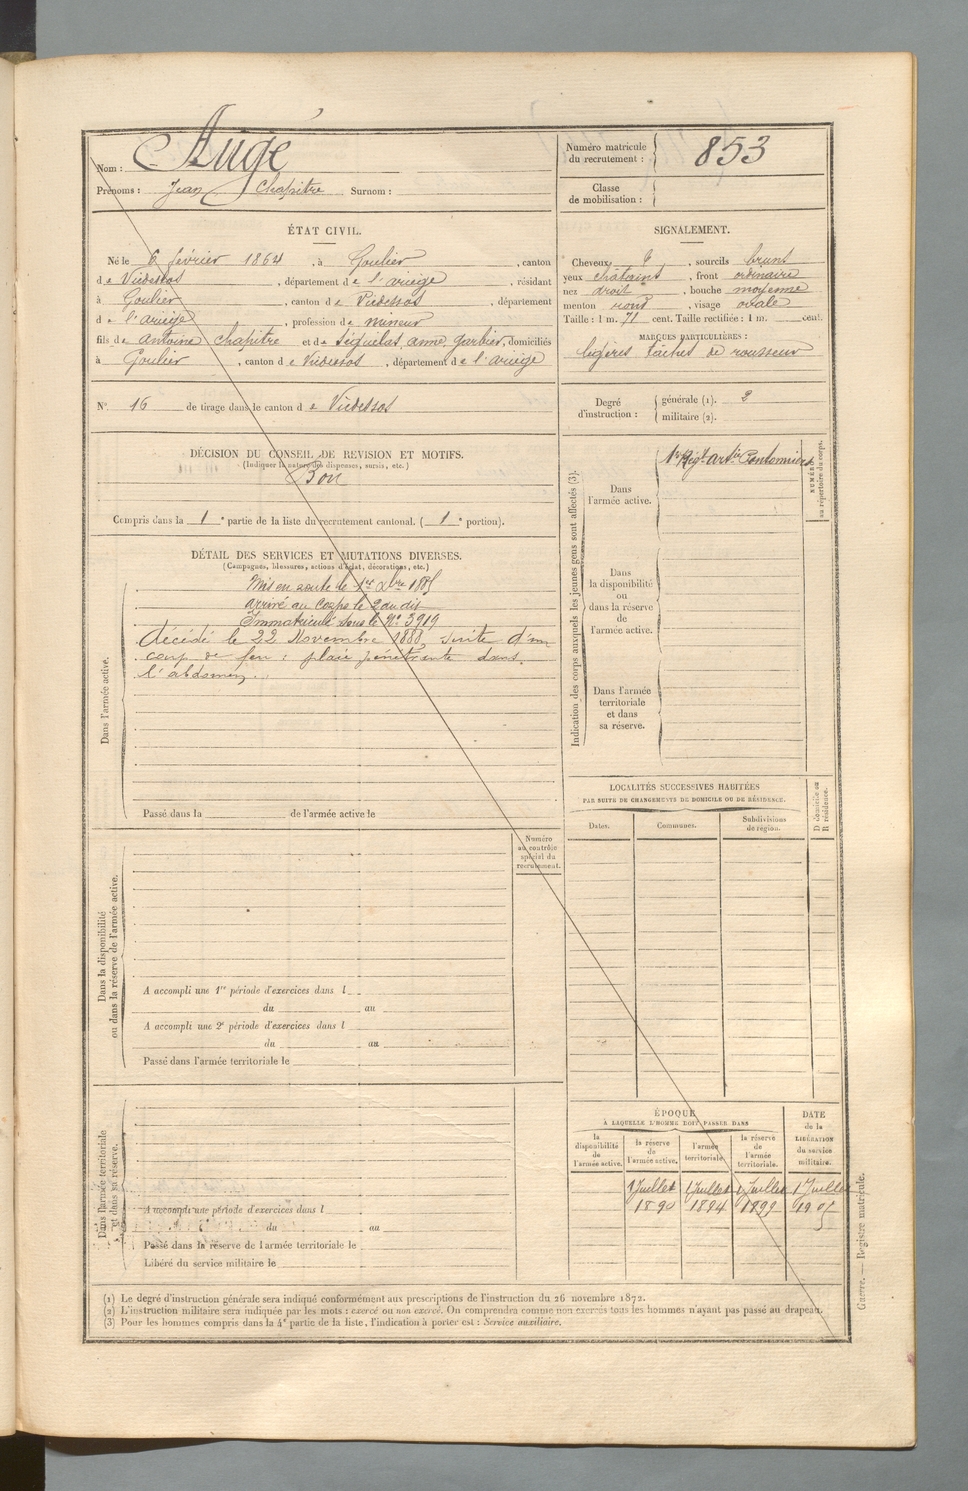 Nom : Augé
Prénoms : Jean Chapitre Surnom :
Numéro matricule du recrutement : 853
Classe de mobilisation :
ÉTAT CIVIL.
Né le 6 février 1864, à Goulier, canton
de Vicdessos, département de l'ariège, résidant
à Goulier, canton de Vicdessos, département
de l'ariège, profession de mineur
fils de Antoine Chapitre et de Séguélas, anne, Garbier, domiciliés
à Goulier, canton de Vicdessos, département de l'ariège
SIGNALEMENT.
Cheveux, sourcils bruns
yeux chatains, front ordinaire
nez droit, bouche moyenne
menton rond, visage ovale
Taille : 1 m. 71 cent. Taille rectifiée : 1 m. cent.
MARQUES PARTICULIÈRES :
légères tâches de rousseur
N° 16 de tirage dans le canton de Vicdessos
Degré d'instruction : générale (1). 2
militaire (2).
DÉCISION DU CONSEIL DE REVISION ET MOTIFS.
(Indiquer la nature des dispenses, sursis, etc.)
Bon
Compris dans la 1e partie de la liste du recrutement cantonal. (1e portion).
DÉTAIL DES SERVICES ET MUTATIONS DIVERSES.
(Campagnes, blessures, actions d'éclat, décorations, etc.)
Dans l'armée active.
Mis en route le 1er Xbre 1885
arrivé au Corps le 2 au dit
Immatriculé sous le N° 3919
Décédé le 22 Novembre 1888, suite d'un
coup de feu : plaie pénétrente dans
l'abdomen.
Passé dans la de l'armée active le
Indication des corps auxquels les jeunes gens sont affectés (3).
NUMÉRO au répertoire du corps.
Dans l'armée active.
1er Régt Artie Pontonniers
Dans la disponibilité ou dans la réserve de l'armée active.
Dans l'armée territoriale et dans sa réserve.
LOCALITÉS SUCCESSIVES HABITÉES
PAR SUITE DE CHANGEMENTS DE DOMICILE OU DE RÉSIDENCE.
D Domicile ou R résidence.
Dates. Communes. Subdivisions de région.
Numéro au contrôle spécial du recrutement.
Dans la disponibilité ou dans la réserve de l'armée active.
A accompli une 1re période d'exercices dans l
du au
A accompli une 2e période d'exercices dans l
du au
Passé dans l'armée territoriale le
Dans l'armée territoriale et dans sa réserve.
A accompli une période d'exercices dans l
du au
Passé dans la réserve de l'armée territoriale le
Libéré du service militaire le
ÉPOQUE
À LAQUELLE L'HOMME DOIT PASSER DANS
DATE de la LIBÉRATION du service militaire.
la disponibilité de l'armée active. la réserve de l'armée active. l'armée territoriale. la réserve de l'armée territoriale.
1 Juillet 1 Juillet 1 Juillet 1 Juillet
1890 1894 1899 1905
(1) Le degré d'instruction générale sera indiqué conformément aux prescriptions de l'instruction du 26 novembre 1872.
(2) L'instruction militaire sera indiquée par les mots : exercé ou non exercé. On comprendra comme non exercés tous les hommes n'ayant pas passé au drapeau.
(3) Pour les hommes compris dans la 4e partie de la liste, l'indication à porter est : Service auxiliaire.
Guerre. — Registre matricule.